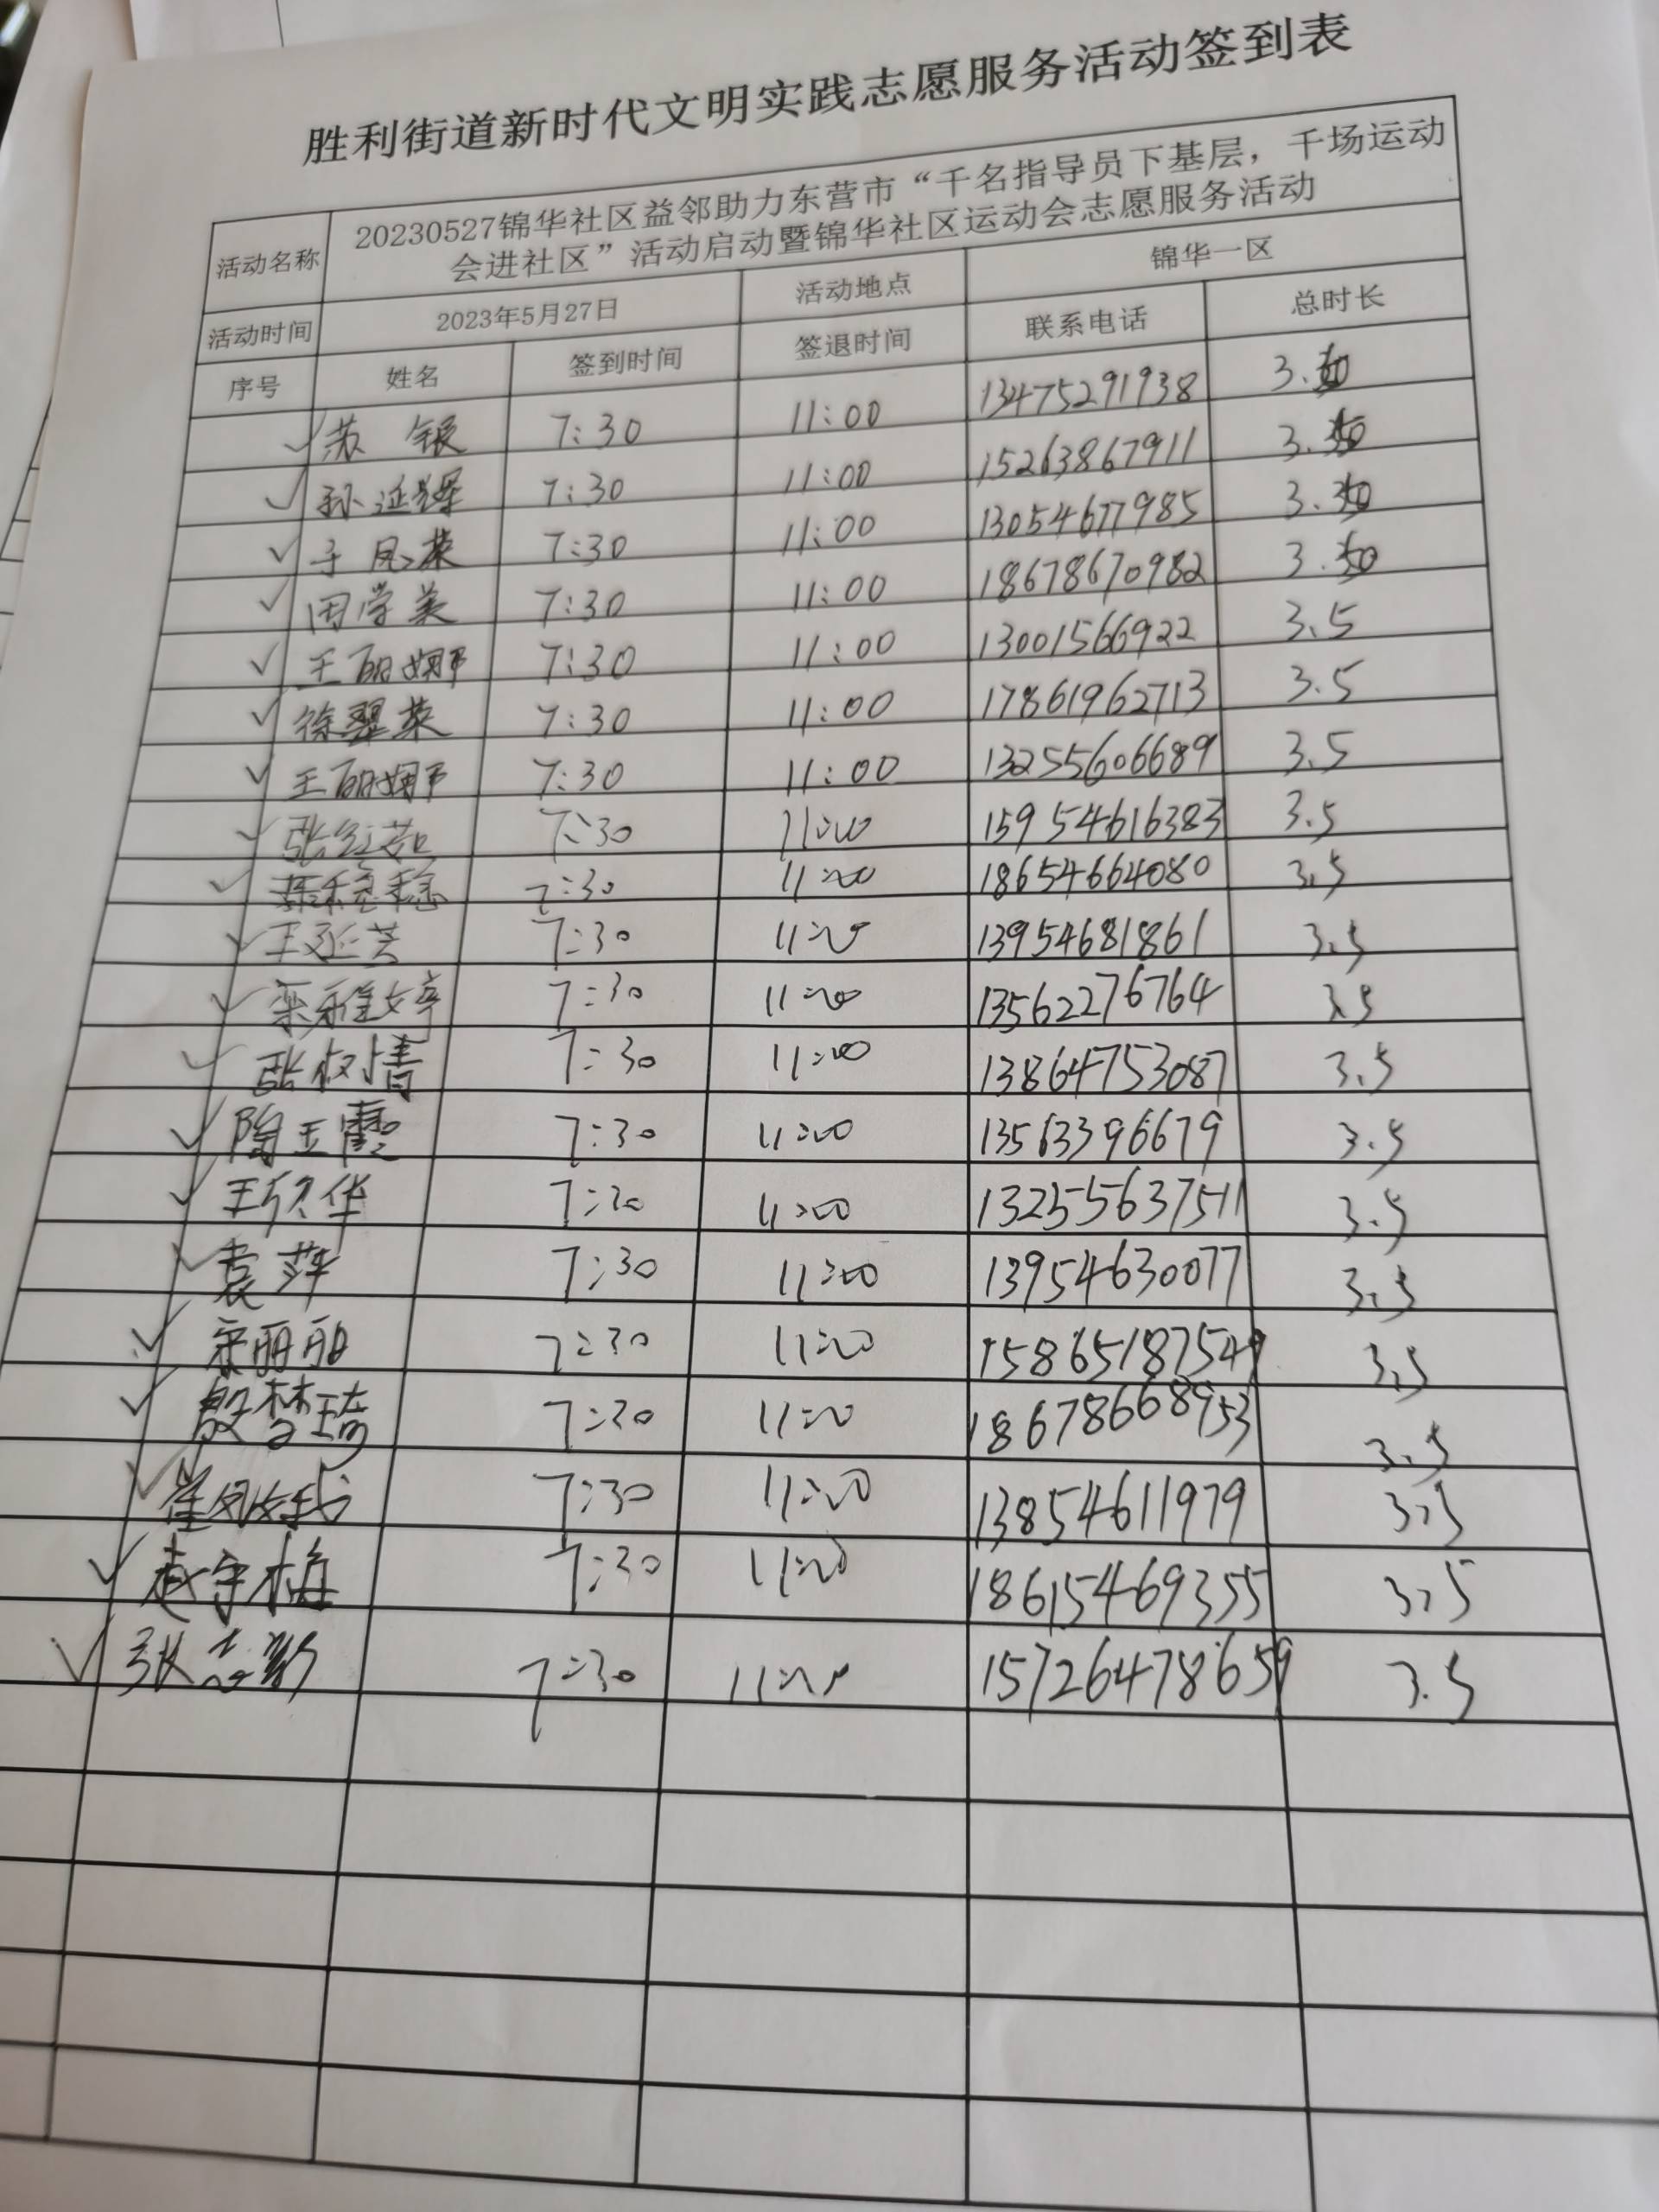 胜利街道新时代文明实践志愿服务活动签到表
活动名称 20230527锦华社区益邻助力东营市“千名指导员下基层，千场运动
会进社区”活动启动暨锦华社区运动会志愿服务活动
活动时间 2023年5月27日 活动地点 锦华一区
序号 姓名 签到时间 签退时间 联系电话 总时长
✓ 苏银 7:30 11:00 13475291938 3.
✓ 孙延辉 7:30 11:00 15263867911 3.
✓ 于凤菜 7:30 11:00 13054677985 3.
✓ 田学美 7:30 11:00 18678670982 3.
✓ 王丽娜 7:30 11:00 13001566922 3.5
✓ 徐翠菜 7:30 11:00 17861962713 3.5
✓ 王丽娜 7:30 11:00 13255606689 3.5
✓ 张红茹 7:30 11:00 15954616383 3.5
✓ 7:30 11:00 18654664080 3.5
✓ 王延芳 7:30 11:00 13954681861 3.5
✓ 栾雅婷 7:30 11:00 13562276764 3.5
✓ 张树情 7:30 11:00 13864753087 3.5
✓ 陶玉霞 7:30 11:00 13563396679 3.5
✓ 王欣华 7:30 11:00 13255637511 3.5
✓ 袁萍 7:30 11:00 13954630077 3.5
✓ 宋丽丽 7:30 11:00 15865187549 3.5
✓ 殷梦琦 7:30 11:00 18678668953 3.5
✓ 崔凤 7:30 11:00 13854611979 3.5
✓ 赵守梅 7:30 11:00 18615469355 3.5
✓ 张志 7:30 11:00 15726478659 3.5